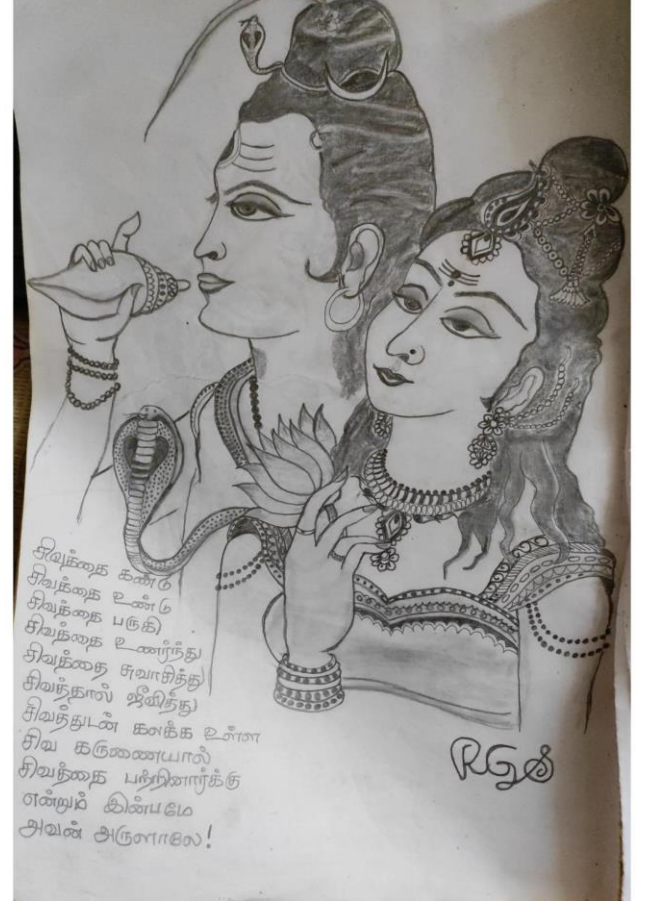 சிவத்தை கண்டு
சிவத்தை உண்டு
சிவத்தை பருகி
சிவத்தை உணர்ந்து
சிவத்தை சுவாசித்து
சிவத்தால் ஜீவித்து
சிவத்துடன் கலக்க உள்ள
சிவ கருணையால்
சிவத்தை பற்றினார்க்கு
என்றும் இன்பமே
அவன் அருளாலே!
RGS